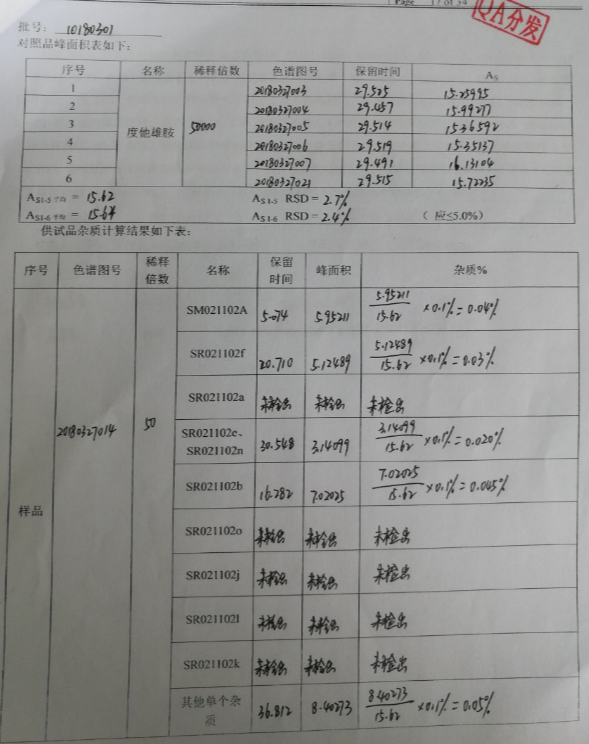 Page 17 of 34
QA分发
批号: 10180301
对照品峰面积表如下:
序号 名称 稀释倍数 色谱图号 保留时间 As
1 度他雄胺 50000 20180327003 29.525 15.25995
2 20180327004 29.457 15.99277
3 20180327005 29.514 15.36592
4 20180327006 29.519 15.35137
5 20180327007 29.491 16.13104
6 20180327021 29.515 15.72235
AS1-5 平均 = 15.62 AS1-5 RSD = 2.7%
AS1-6 平均 = 15.64 AS1-6 RSD = 2.4% ( 应≤5.0%)
供试品杂质计算结果如下表:
序号 色谱图号 稀释倍数 名称 保留时间 峰面积 杂质%
样品 20180327014 50
SM021102A 5.074 5.95211 5.95211/15.62 ×0.1%=0.04%
SR021102f 20.710 5.12489 5.12489/15.62 ×0.1%=0.03%
SR021102a 未检出 未检出 未检出
SR021102e、SR021102n 30.548 3.14099 3.14099/15.62 ×0.1%=0.020%
SR021102b 16.282 7.02025 7.02025/15.62 ×0.1%=0.045%
SR021102o 未检出 未检出 未检出
SR021102j 未检出 未检出 未检出
SR021102l 未检出 未检出 未检出
SR021102k 未检出 未检出 未检出
其他单个杂质 36.812 8.40273 8.40273/15.62 ×0.1%=0.05%